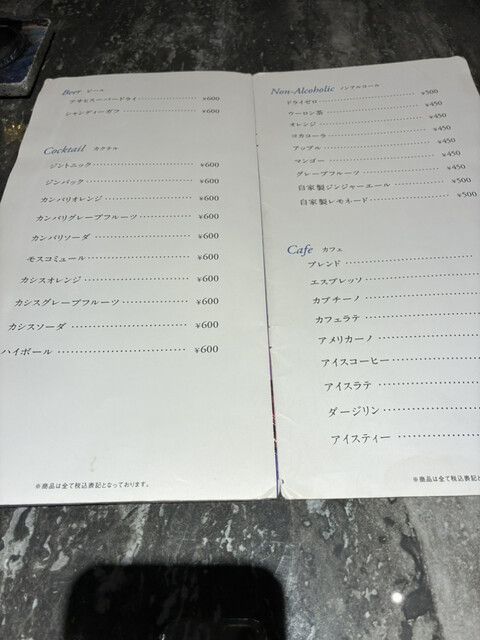 Beer ビール
アサヒスーパードライ ¥600
シャンディーガフ ¥600
Cocktail カクテル
ジントニック ¥600
ジンバック ¥600
カンパリオレンジ ¥600
カンパリグレープフルーツ ¥600
カンパリソーダ ¥600
モスコミュール ¥600
カシスオレンジ ¥600
カシスグレープフルーツ ¥600
カシスソーダ ¥600
ハイボール ¥600
※商品は全て税込表記となっております。
Non-Alcoholic ノンアルコール
ドライゼロ ¥500
ウーロン茶 ¥450
オレンジ ¥450
コカコーラ ¥450
アップル ¥450
マンゴー ¥450
グレープフルーツ ¥450
自家製ジンジャーエール ¥500
自家製レモネード ¥500
Cafe カフェ
ブレンド
エスプレッソ
カプチーノ
カフェラテ
アメリカーノ
アイスコーヒー
アイスラテ
ダージリン
アイスティー
※商品は全て税込表記と